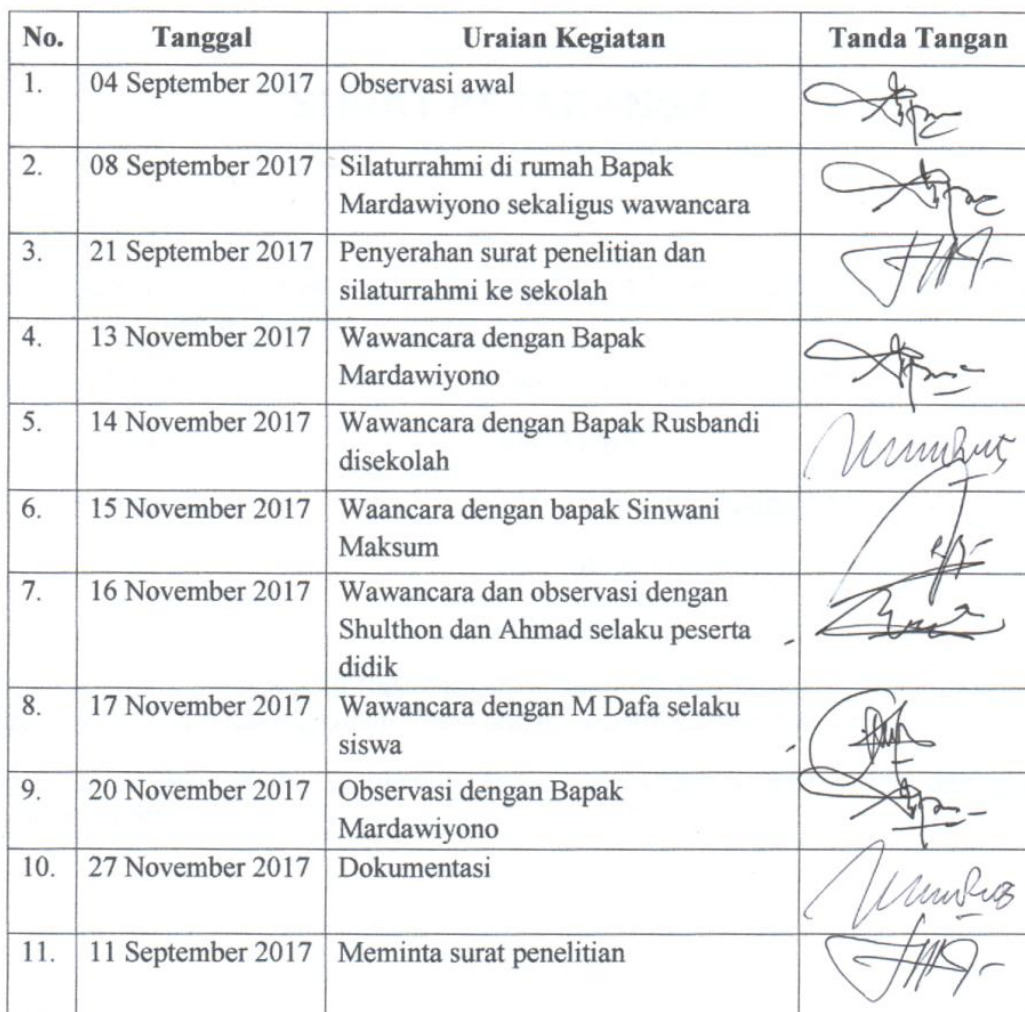 No. Tanggal Uraian Kegiatan Tanda Tangan
1. 04 September 2017 Observasi awal
2. 08 September 2017 Silaturrahmi di rumah Bapak
Mardawiyono sekaligus wawancara
3. 21 September 2017 Penyerahan surat penelitian dan
silaturrahmi ke sekolah
4. 13 November 2017 Wawancara dengan Bapak
Mardawiyono
5. 14 November 2017 Wawancara dengan Bapak Rusbandi
disekolah
6. 15 November 2017 Waancara dengan bapak Sinwani
Maksum
7. 16 November 2017 Wawancara dan observasi dengan
Shulthon dan Ahmad selaku peserta
didik
8. 17 November 2017 Wawancara dengan M Dafa selaku
siswa
9. 20 November 2017 Observasi dengan Bapak
Mardawiyono
10. 27 November 2017 Dokumentasi
11. 11 September 2017 Meminta surat penelitian